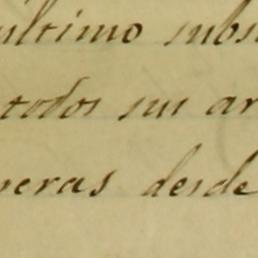 último subs
todos sus ar
neras desde